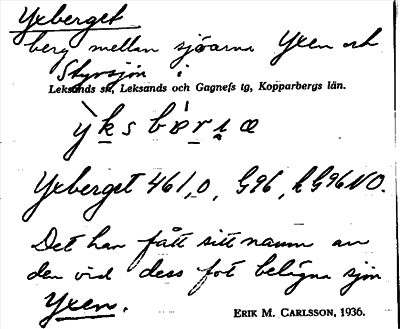 Yxberget
berg mellan sjöarna Yxen och
Styrsjön i
Leksands sn, Leksands och Gagnefs tg, Kopparbergs län.
Yxberget 461,0, G96, h G96 NO.
Det har fått sitt namn av
den vid dess fot belägna sjön
Yxen.
ERIK M. CARLSSON, 1936.